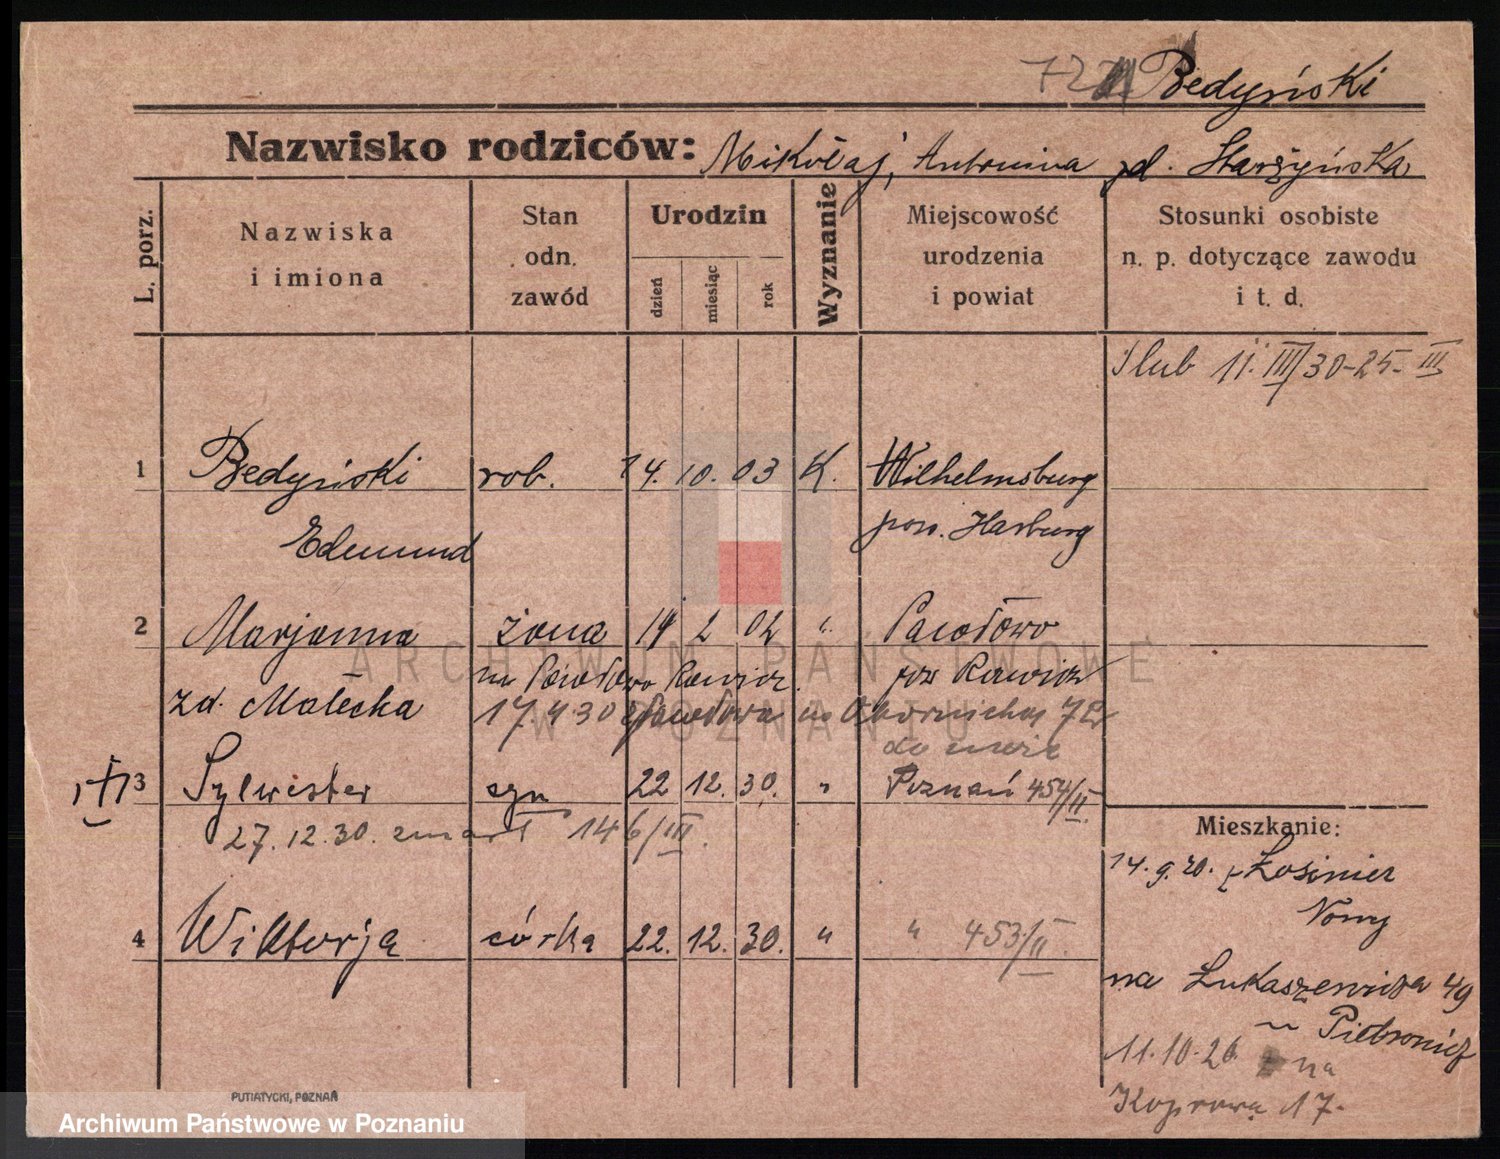 Bedyński
Nazwisko rodziców: Mikołaj, Antonina zd. Starzyńska
L. porz.
Nazwiska i imiona
Stan odn. zawód
Urodzin
dzień
miesiąc
rok
Wyznanie
Miejscowość urodzenia i powiat
Stosunki osobiste n. p. dotyczące zawodu i t. d.
Ślub 11. III 30 - 25. III
1 Bedyński rob. 14. 10. 03 K. Wilhelmsburg
Edmund pow. Harburg
2 Marjanna żona 14 2 02 " Pawłowo
zd. Małecka pow Rawicz
17 4 30 z Pawłowa
3 Sylwester syn 22 12. 30. " Poznań 454/II
27. 12. 30. zmarł 146/III.
4 Wiktorja córka 22. 12. 30. " " 453/II.
Mieszkanie:
14. 9. 20. z Łosiniec
Nowy
na Łukaszewicza 49
11. 10. 26. na
Koprową 17.
PUTIATYCKI, POZNAŃ
ARCHIWUM PAŃSTWOWE
W POZNANIU
Archiwum Państwowe w Poznaniu